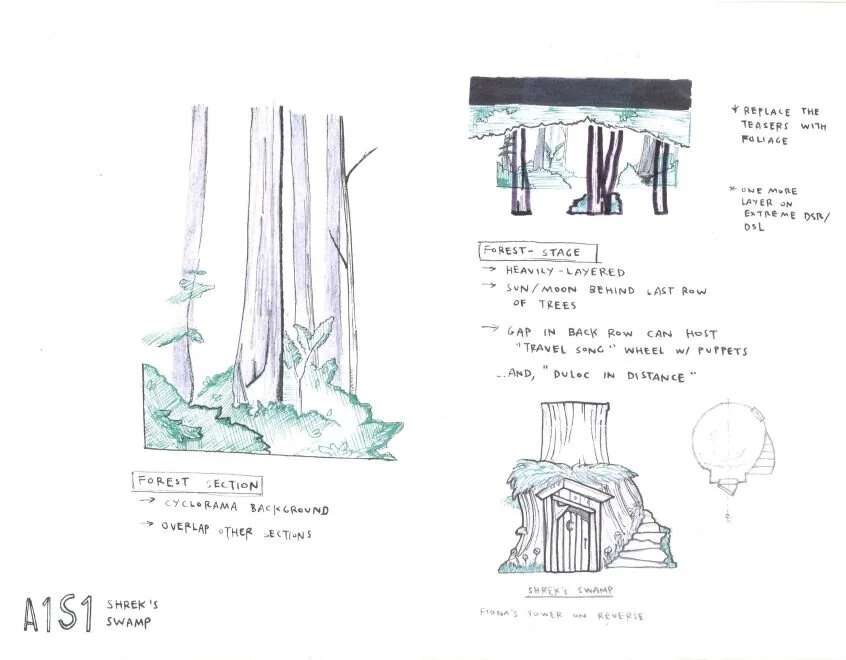 * REPLACE THE
TEASERS WITH
FOLIAGE
* ONE MORE
LAYER ON
EXTREME DSR/
DSL
FOREST- STAGE
→ HEAVILY-LAYERED
→ SUN/MOON BEHIND LAST ROW
OF TREES
→ GAP IN BACK ROW CAN HOST
"TRAVEL SONG" WHEEL W/ PUPPETS
...AND, "DULOC IN DISTANCE"
FOREST SECTION
→ CYCLORAMA BACKGROUND
→ OVERLAP OTHER SECTIONS
SHREK'S SWAMP
FIONA'S TOWER ON REVERSE
A1S1
SHREK'S
SWAMP